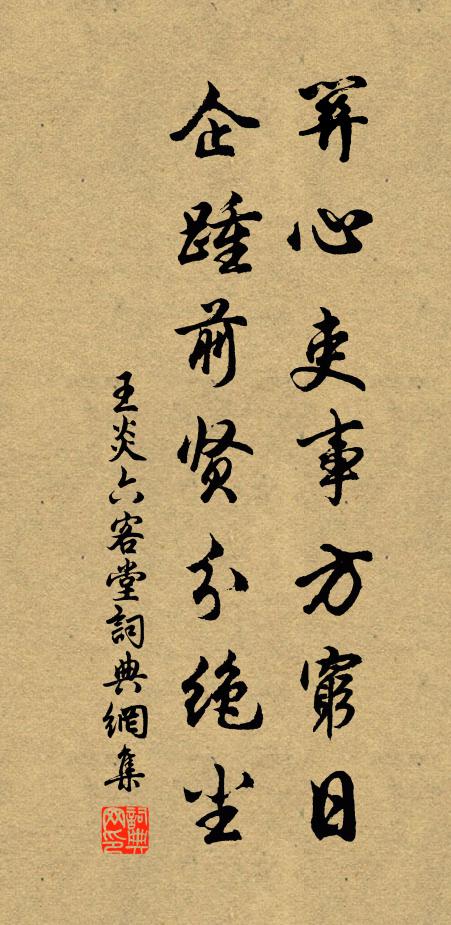 羿心吏事方窮日
企踵前贤分绝尘
王炎六客堂詞典網集
詞典
网印